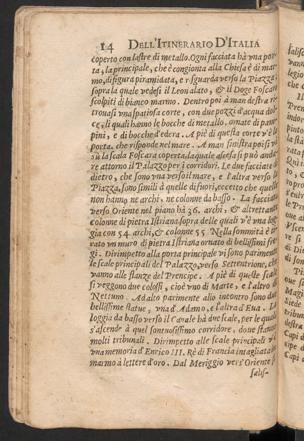 14 DELL'ITINERARIO D'ITALIA
coperto con lastre di metallo. Ogni facciata hà vna por-
ta, la principale, che è congionta alla Chiesa è di mar-
mo, di figura piramidata, e risguarda verso la Piazza,
sopra la quale vedesi il Leon alato, & il Doge Foscari
scolpiti di bianco marmo. Dentro poi à man destra ri-
trouasi vna spatiosa corte, con due pozzi d'acqua dol-
ce, li quali hanno le bocche di metallo, ornate di pam-
pini, e di bocche d'edera. A piè di questa corte v'è la
porta, che risponde nel mare. A man sinistra poi si và
sù la scala Foscara coperta, la quale ascesa si può anda-
re attorno il Palazzo per i corridori. Le due facciate
dietro, che sono vna verso il mare, e l'altra verso la
Piazza, sono simili à quelle di fuori, eccetto che quelle
non hanno ne archi, ne colonne da basso. La facciata
verso Oriente nel piano hà 36. archi, & altrettante
colonne di pietra Istriana sopra delle quali v'è una log-
gia con 54 archi, & colonne 55. Nella sommità è ti-
rato vn muro di pietra Istriana ornato di bellissimi fre-
gi. Dirimpetto alla porta principale vi sono parimente
le scale principali del Palazzo, verso Settentrione, che
vanno alle stanze del Prencipe. A piè di queste scale
si veggono due colossi, cioè vno di Marte, e l'altro di
Nettuno. Ad alto parimente allo incontro sono due
bellissime statue, vna d'Adamo, e l'altra d'Eua. La
loggia da basso verso il Canale hà due scale, per le quali
s'ascende à quel sontuosissimo corridore, doue stanno
molti tribunali. Dirimpetto alle scale principali v'è
vna memoria d'Enrico III. Rè di Francia intagliata in
marmo à lettere d'oro. Dal Meriggio vers'Oriente si
salis-